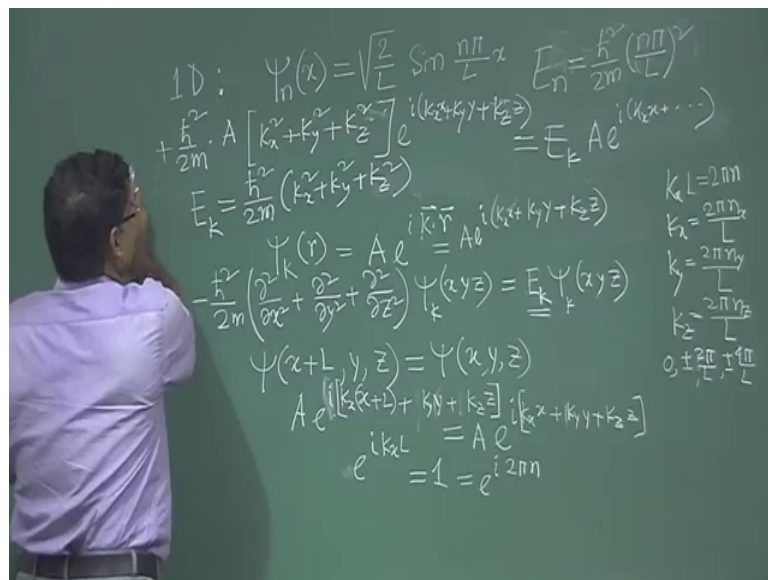 1D : ψₙ(x) = √(2/L) Sin nπ/L x Eₙ = ħ²/2m (nπ/L)²
+ ħ²/2m · A [kₓ² + k_y² + k_z²] e^{i(kₓx + k_y y + k_z z)} = E_k A e^{i(kₓx + ···)}
E_k = ħ²/2m (kₓ² + k_y² + k_z²)
ψ_k(r) = A e^{i k⃗·r⃗} = A e^{i(kₓx + k_y y + k_z z)}
- ħ²/2m (∂²/∂x² + ∂²/∂y² + ∂²/∂z²) ψ_k(xyz) = E_k ψ_k(xyz)
ψ(x+L, y, z) = ψ(x, y, z)
A e^{i[kₓ(x+L) + k_y y + k_z z]} = A e^{i[kₓx + k_y y + k_z z]}
e^{i kₓ L} = 1 = e^{i 2πn}
kₓL = 2πn
kₓ = 2πnₓ/L
k_y = 2πn_y/L
k_z = 2πn_z/L
0, ± 2π/L, ± 4π/L